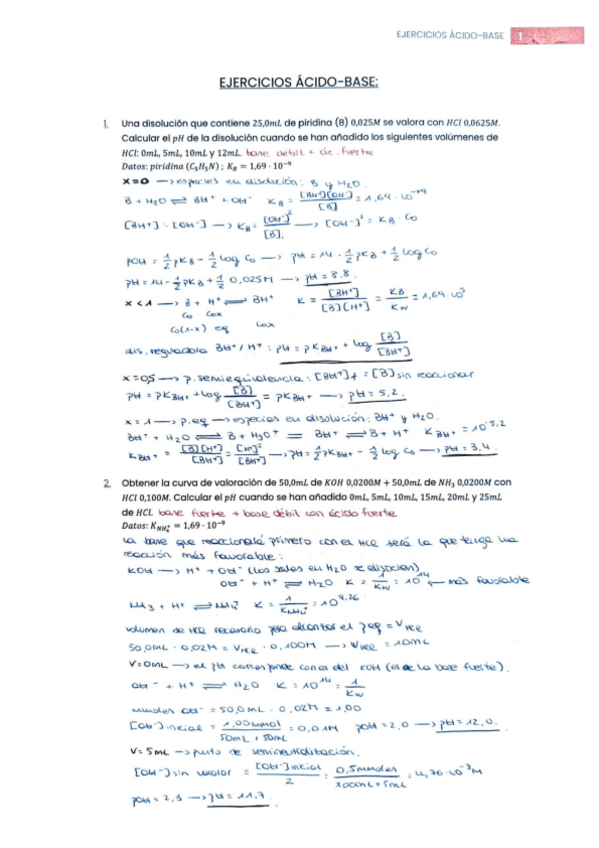 EJERCICIOS ÁCIDO-BASE 1
EJERCICIOS ÁCIDO-BASE:
1. Una disolución que contiene 25,0mL de piridina (B) 0,025M se valora con HCl 0,0625M.
Calcular el pH de la disolución cuando se han añadido los siguientes volúmenes de
HCl: 0mL, 5mL, 10mL y 12mL. base débil + ác. fuerte
Datos: piridina (C₅H₅N) ; K_B = 1,69 · 10⁻⁹
x=0 → especies en disolución: B y H₂O.
B + H₂O ⇌ BH⁺ + OH⁻ K_B = [BH⁺][OH⁻]/[B] = 1,69 · 10⁻¹⁴
[BH⁺] = [OH⁻] → K_B = [OH⁻]²/[B]. → [OH⁻]² = K_B · C₀
pOH = 1/2 pK_B − 1/2 log C₀ → pH = 14 − 1/2 pK_B + 1/2 log C₀
pH = 14 − 1/2 pK_B + 1/2 0,025M → pH = 8.8.
x < 1 → B + H⁺ ⇌ BH⁺ K = [BH⁺]/[B][H⁺] = K_B/K_W = 1,69 · 10⁵
C₀ C₀x
C₀(1-x) eq C₀x
dis. reguladora BH⁺/H⁺ : pH = pK_BH⁺ + log [B]/[BH⁺]
x = 0,5 → p. semiequivalencia : [BH⁺]f = [B] sin reaccionar
pH = pK_BH⁺ + log [B]/[BH⁺] = pK_BH⁺ → pH = 5,2.
x = 1 → p.eq → especies en disolución: BH⁺ y H₂O.
BH⁺ + H₂O ⇌ B + H₃O⁺ = BH⁺ ⇌ B + H⁺ K_BH⁺ = 10⁻⁵·²
K_BH⁺ = [B][H⁺]/[BH⁺] = [H⁺]²/[BH⁺] → pH = 1/2 pK_BH⁺ − 1/2 log C₀ → pH = 3,4.
2. Obtener la curva de valoración de 50,0mL de KOH 0,0200M + 50,0mL de NH₃ 0,0200M con
HCl 0,100M. Calcular el pH cuando se han añadido 0mL, 5mL, 10mL, 15mL, 20mL y 25mL
de HCl. base fuerte + base débil con ácido fuerte
Datos: K_NH₄⁺ = 1,69 · 10⁻⁹
La base que reaccionará primero con el HCl será la que tenga una
reacción más favorable :
KOH → H⁺ + OH⁻ (las sales en H₂O se disocian)
OH⁻ + H⁺ ⇌ H₂O K = 1/K_W = 10¹⁴ ← más favorable
NH₃ + H⁺ ⇌ NH₄⁺ K = 1/K_NH₄⁺ = 10⁹·²⁶
volumen de HCl necesario para alcanzar el peq = V_HCl
50,0mL · 0,02M = V_HCl · 0,100M → V_HCl = 10mL
V=0mL → el pH corresponde con el del KOH (el de la base fuerte).
OH⁻ + H⁺ ⇌ H₂O K = 10¹⁴ = 1/K_W
mmoles OH⁻ = 50,0mL · 0,02M = 1,00
[OH⁻] inicial = 1,00mmol/50mL + 50mL = 0,01M pOH = 2,0 → pH = 12,0.
V= 5mL → punto de semineutralización.
[OH⁻] sin valorar = [OH⁻] inicial/2 = 0,5mmoles/100mL + 5mL = 4,76 · 10⁻³M
pOH = 2,3 → pH = 11,7.